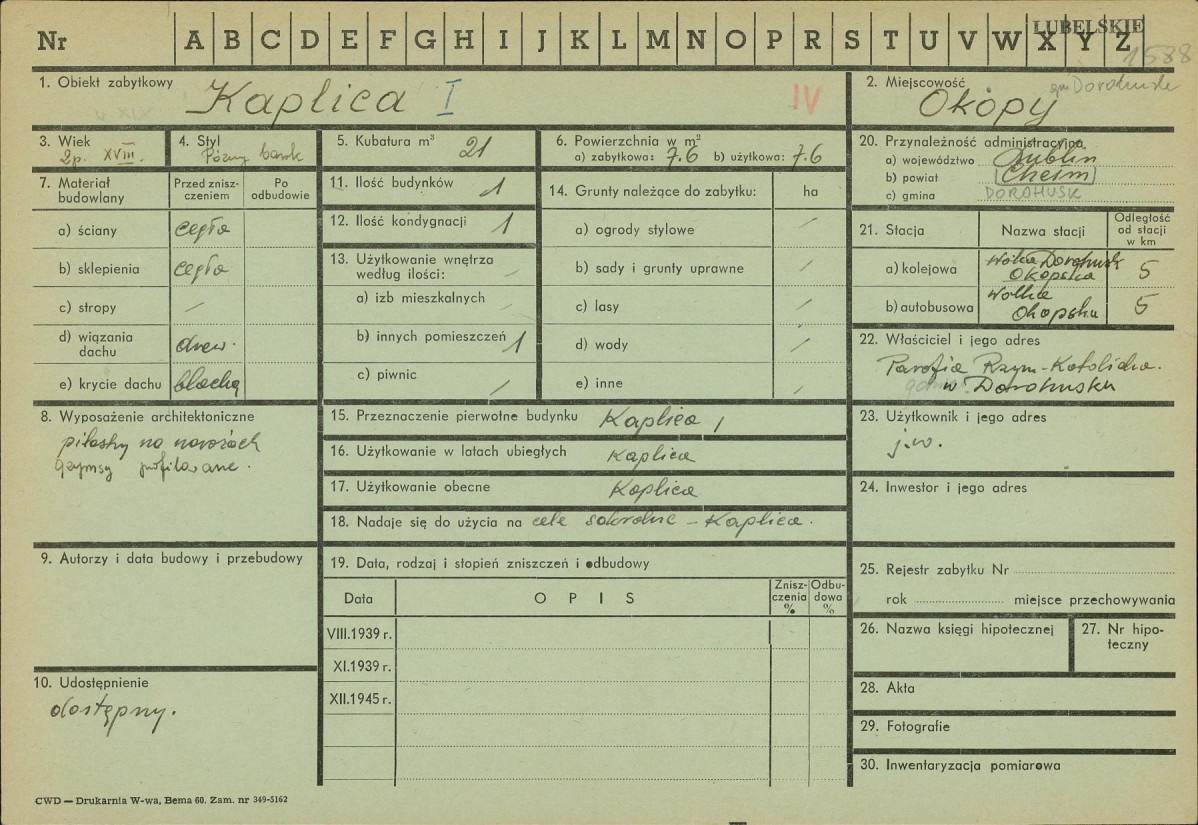 LUBELSKIE
Nr A B C D E F G H I J K L M N O P R S T U V W X Y Z
1588
1. Obiekt zabytkowy Kaplica I IV
XIX
2. Miejscowość gm Dorohusk
Okopy
3. Wiek 2p. XVIII.
4. Styl Późny barok
5. Kubatura m³ 21
6. Powierzchnia w m²
a) zabytkowa: 7.6 b) użytkowa: 7.6
7. Materiał budowlany
Przed zniszczeniem
Po odbudowie
a) ściany cegła
b) sklepienia cegła
c) stropy /
d) wiązania dachu drew.
e) krycie dachu blachą
8. Wyposażenie architektoniczne
pilastry na narożach
gzymsy profilowane.
9. Autorzy i data budowy i przebudowy
10. Udostępnienie
dostępny.
11. Ilość budynków 1
12. Ilość kondygnacji 1
13. Użytkowanie wnętrza
według ilości: /
a) izb mieszkalnych /
b) innych pomieszczeń 1
c) piwnic /
14. Grunty należące do zabytku: ha
a) ogrody stylowe /
b) sady i grunty uprawne /
c) lasy /
d) wody /
e) inne /
15. Przeznaczenie pierwotne budynku Kaplica
16. Użytkowanie w latach ubiegłych Kaplica
17. Użytkowanie obecne Kaplica
18. Nadaje się do użycia na cele sakralne – Kaplica.
19. Data, rodzaj i stopień zniszczeń i odbudowy
Data OPIS Zniszczenia % Odbudowa %
VIII.1939 r.
XI.1939 r.
XII.1945 r.
20. Przynależność administracyjna
a) województwo Lublin
b) powiat Chełm
c) gmina DOROHUSK
21. Stacja Nazwa stacji Odległość od stacji w km
a) kolejowa Wólka Dorohusk Okopska 5
b) autobusowa Wólka Okopska 5
22. Właściciel i jego adres
Parafia Rzym-Katolicka.
w Dorohusku
23. Użytkownik i jego adres
j.w.
24. Inwestor i jego adres
25. Rejestr zabytku Nr
rok miejsce przechowywania
26. Nazwa księgi hipotecznej
27. Nr hipoteczny
28. Akta
29. Fotografie
30. Inwentaryzacja pomiarowa
CWD — Drukarnia W-wa, Bema 60. Zam. nr 349-5162